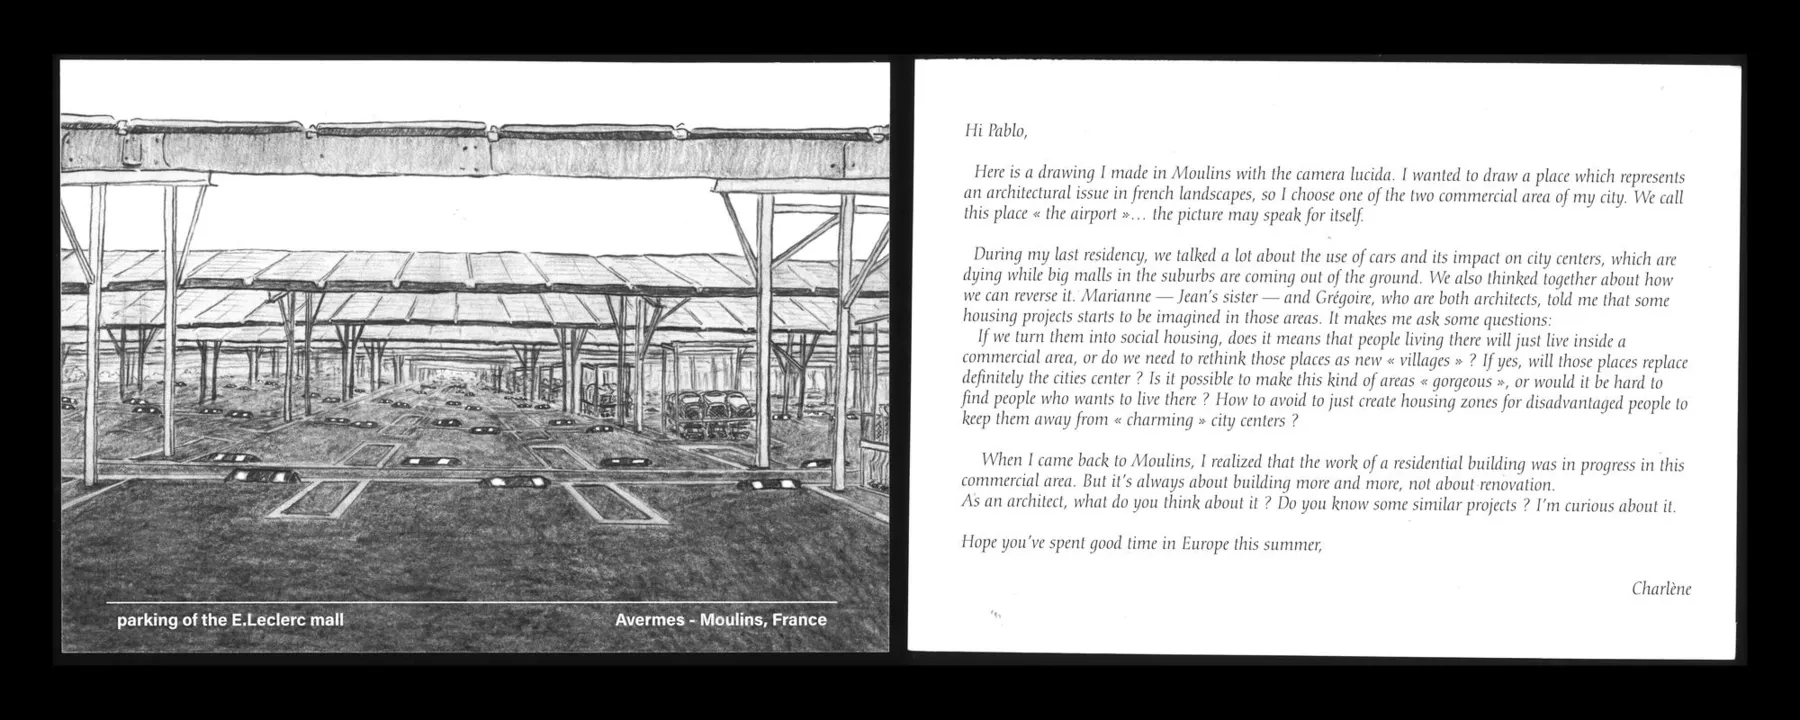 parking of the E.Leclerc mall
Avermes - Moulins, France
Hi Pablo,
Here is a drawing I made in Moulins with the camera lucida. I wanted to draw a place which represents
an architectural issue in french landscapes, so I choose one of the two commercial area of my city. We call
this place « the airport »… the picture may speak for itself.
During my last residency, we talked a lot about the use of cars and its impact on city centers, which are
dying while big malls in the suburbs are coming out of the ground. We also thinked together about how
we can reverse it. Marianne — Jean's sister — and Grégoire, who are both architects, told me that some
housing projects starts to be imagined in those areas. It makes me ask some questions:
If we turn them into social housing, does it means that people living there will just live inside a
commercial area, or do we need to rethink those places as new « villages » ? If yes, will those places replace
definitely the cities center ? Is it possible to make this kind of areas « gorgeous », or would it be hard to
find people who wants to live there ? How to avoid to just create housing zones for disadvantaged people to
keep them away from « charming » city centers ?
When I came back to Moulins, I realized that the work of a residential building was in progress in this
commercial area. But it's always about building more and more, not about renovation.
As an architect, what do you think about it ? Do you know some similar projects ? I'm curious about it.
Hope you've spent good time in Europe this summer,
Charlène